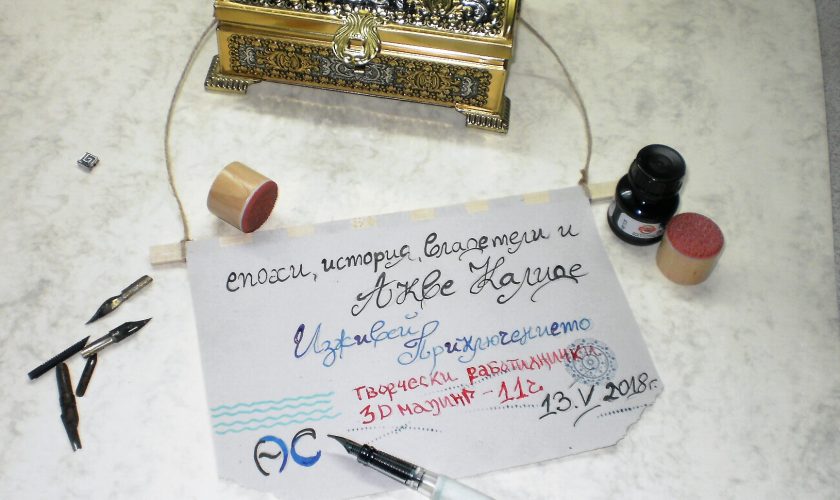 епохи, история, владетели и
Акве Калиде
Изживей
Приключението
творчески работилнички
3D мапинг - 11 г.
13.V 2018г.
АС